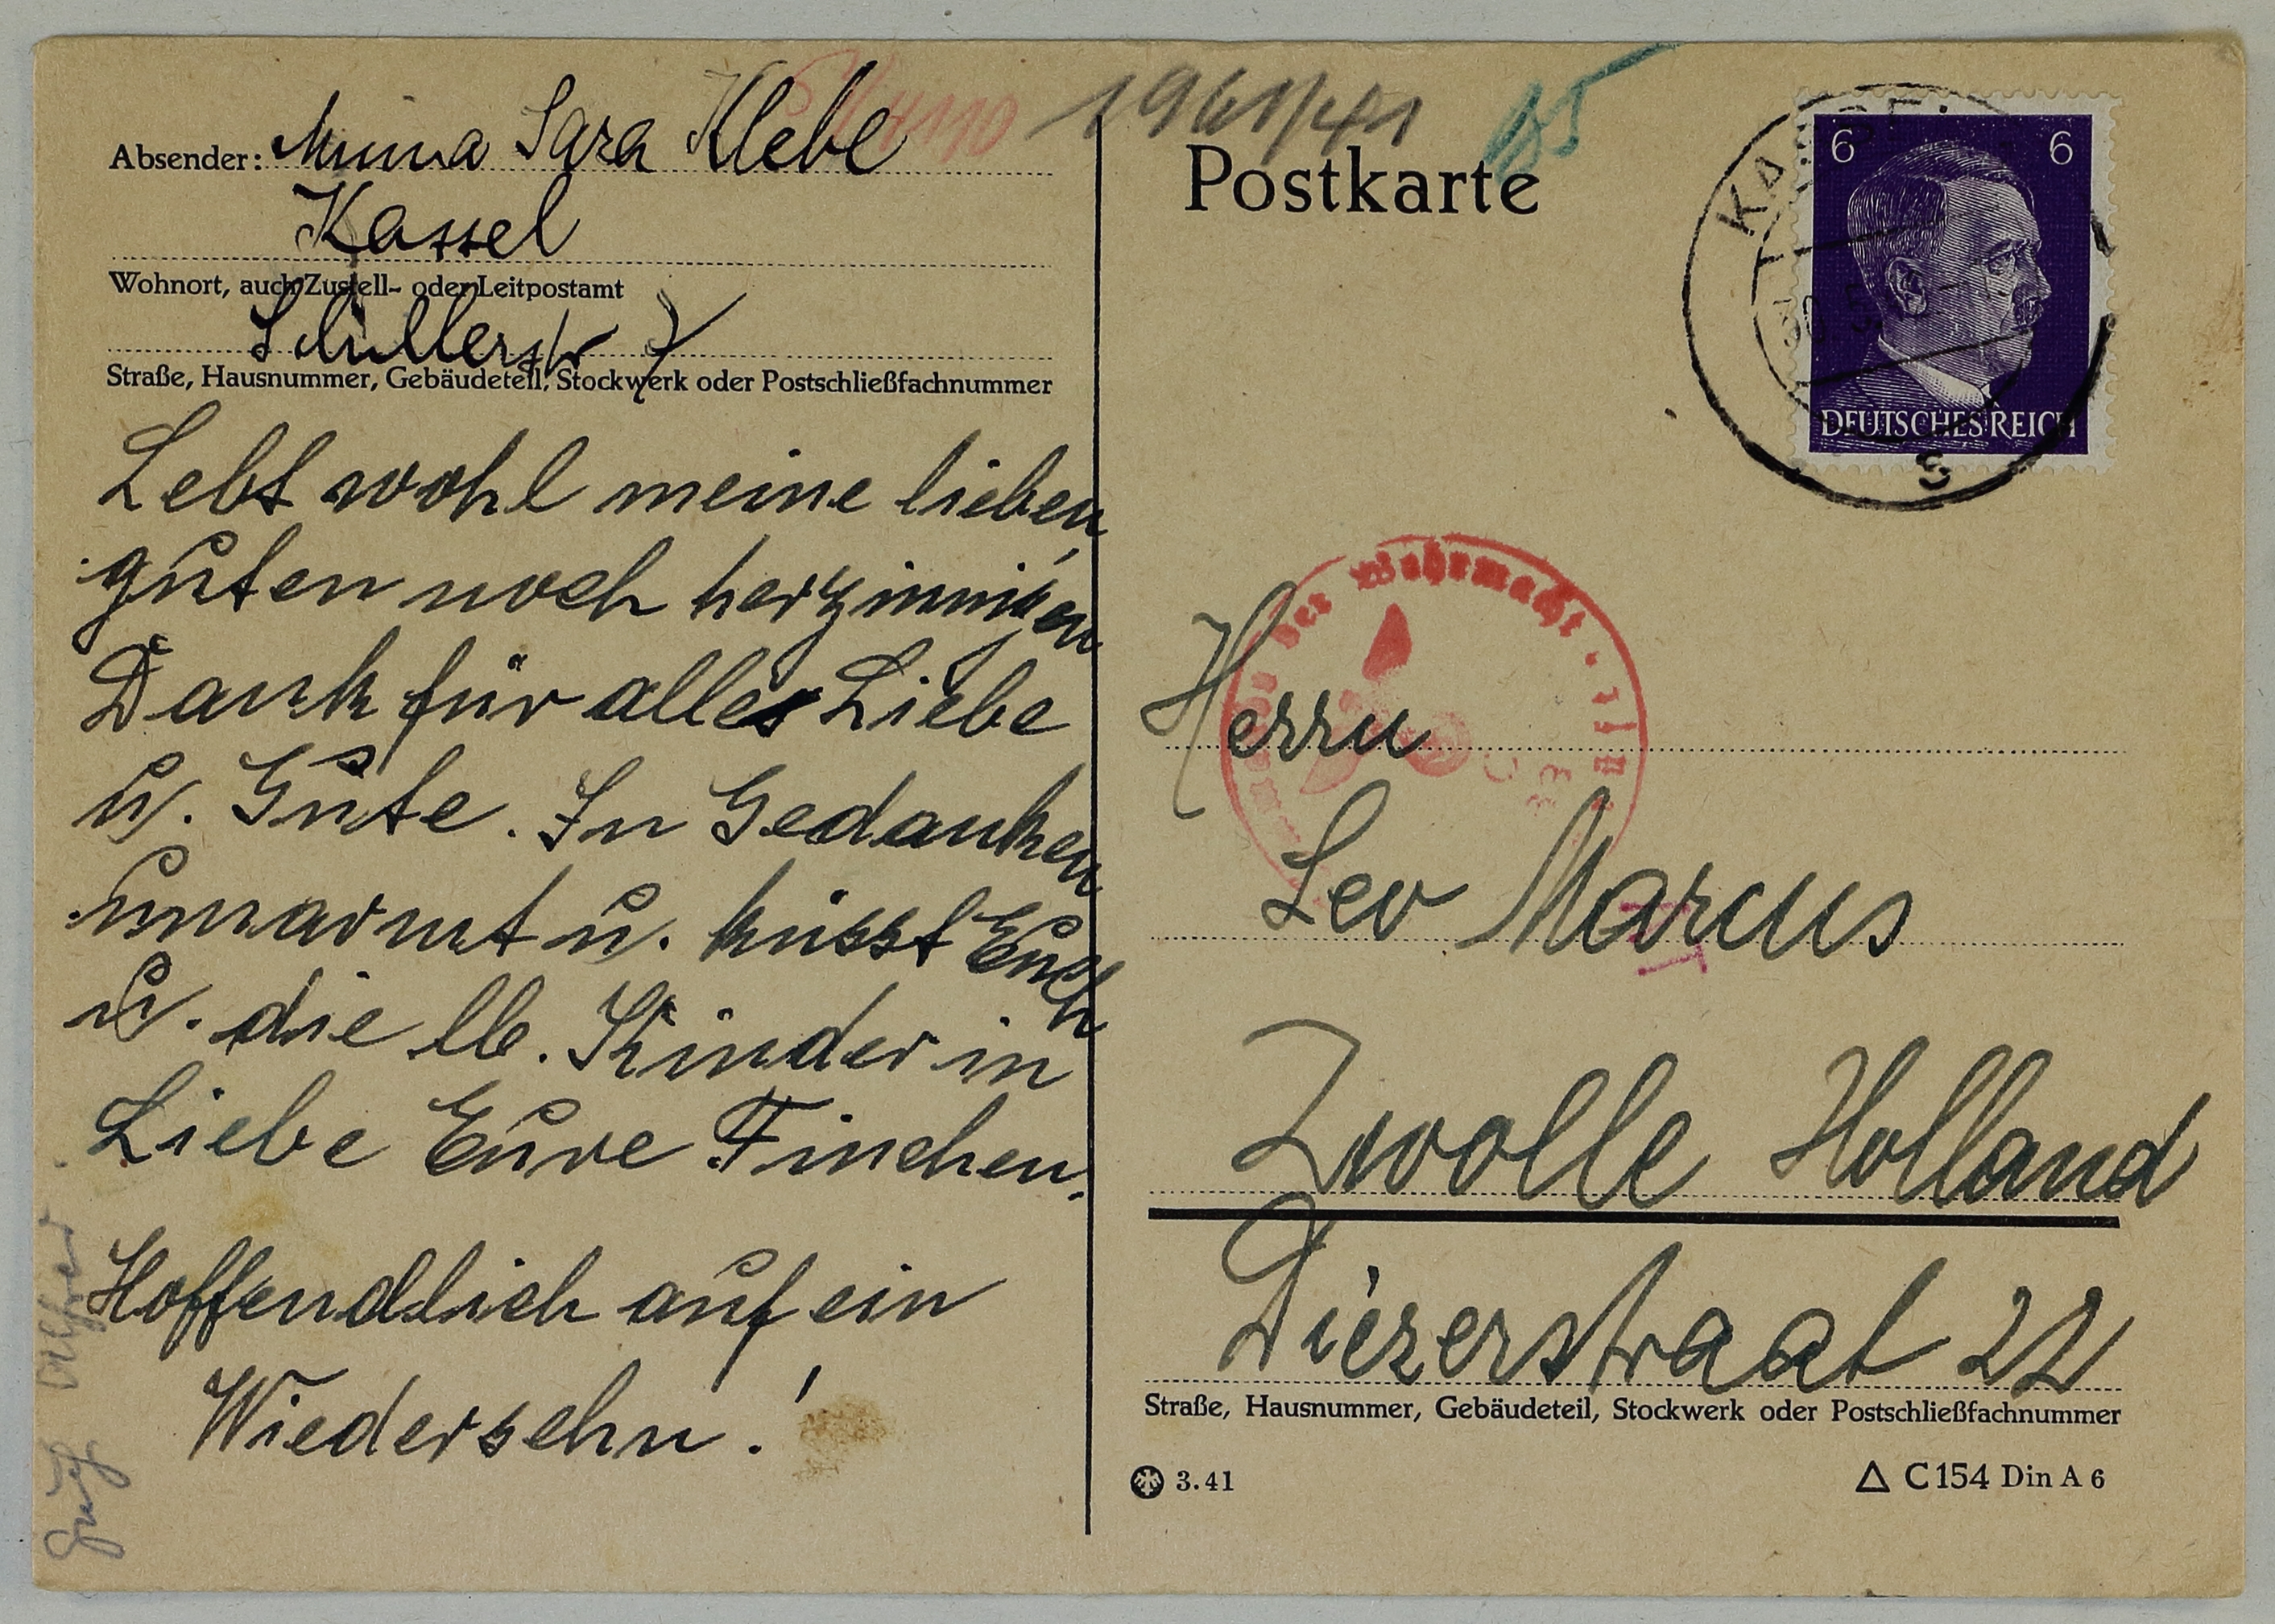 Absender: Minna Sara Klebe
Kassel
Wohnort, auch Zustell- oder Leitpostamt
Schillerstr 7
Straße, Hausnummer, Gebäudeteil, Stockwerk oder Postschließfachnummer
Lebt wohl meine lieben,
guten noch herzinnigen
Dank für alles Liebe
u. Güte. In Gedanken
umarmt u. küsst Euch
u. die lb. Kinder in
Liebe Eure Finchen.
Hoffendlich auf ein
Wiedersehn!
1961/41
Postkarte
6 6
DEUTSCHES REICH
der Wehrmacht
Herrn
Leo Marcus
Zwolle Holland
Diezerstraat 22
Straße, Hausnummer, Gebäudeteil, Stockwerk oder Postschließfachnummer
3.41
C 154 Din A 6